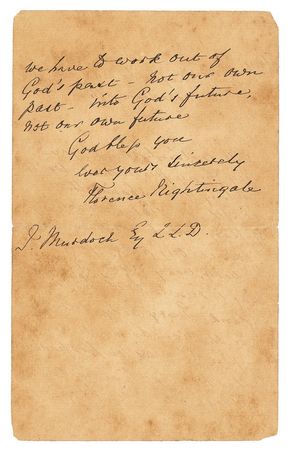 we have to work out of
God's past – Not our own
past – into God's future,
not our own future
God bless you
ever yours sincerely
Florence Nightingale
J. Murdoch Esq LLD.